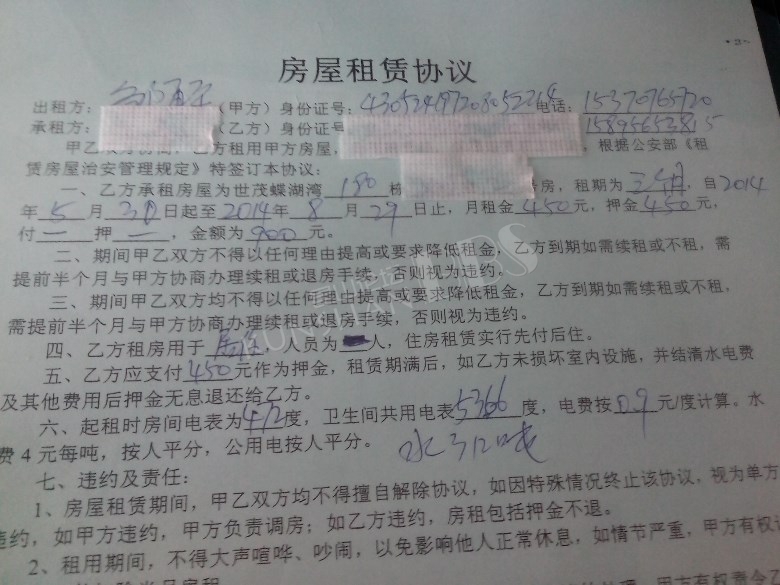 房屋租赁协议
出租方： （甲方）身份证号：430524197208052214电话：15370765720
承租方： （乙方）身份证号 15895653815
甲乙双方协商，乙方租用甲方房屋， ，根据公安部《租
赁房屋治安管理规定》特签订本协议：
一、乙方承租房屋为世茂蝶湖湾 180 栋 号房，租期为三个月，自2014
年 5 月 30日起至2014年 8 月 29日止，月租金450元，押金450元，
付一 押一，金额为900元。
二、期间甲乙双方不得以任何理由提高或要求降低租金，乙方到期如需续租或不租，需
提前半个月与甲方协商办理续租或退房手续，否则视为违约。
三、期间甲乙双方均不得以任何理由提高或要求降低租金，乙方到期如需续租或不租，
需提前半个月与甲方协商办理续租或退房手续，否则视为违约。
四、乙方租房用于 居住，人员为 人，住房租赁实行先付后住。
五、乙方应支付450元作为押金，租赁期满后，如乙方未损坏室内设施，并结清水电费
及其他费用后押金无息退还给乙方。
六、起租时房间电表为412度，卫生间共用电表5366 度，电费按0.9元/度计算。水
费4元每吨，按人平分，公用电按人平分。 水312吨
七、违约及责任：
1、房屋租赁期间，甲乙双方均不得擅自解除协议，如因特殊情况终止该协议，视为单方
违约，如甲方违约，甲方负责调房；如乙方违约，房租包括押金不退。
2、租用期间，不得大声喧哗、吵闹，以免影响他人正常休息，如情节严重，甲方有权